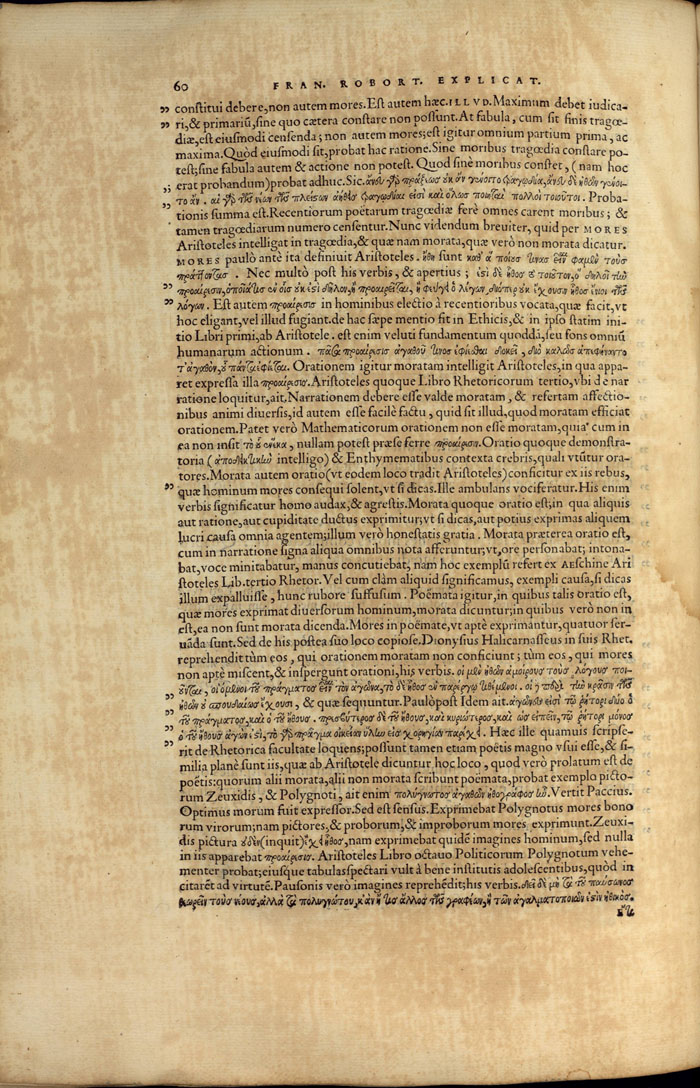 60 FRAN. ROBORT. EXPLICAT.
constitui debere, non autem mores. Est autem hæc. ILLVD. Maximum debet iudica-
ri, & primariũ, sine quo cætera constare non possunt. At fabula, cum sit finis tragœ-
diæ, est eiusmodi censenda; non autem mores; est igitur omnium partium prima, ac
maxima. Quòd eiusmodi sit, probat hac ratione. Sine moribus tragœdia constare po-
test; sine fabula autem & actione non potest. Quod sinè moribus constet, (nam hoc
erat probandum) probat adhuc. Sic. ἄνευ γὸ πράξεως οὐκ ἂν γένοιτο τραγῳδία, ἄνευ δὲ ἠθῶν γένοι-
το ἄν. αἱ γὸ τῆς νέων τῆς πλείστων ἀήθεις τραγῳδίαι εἰσὶ καὶ ὅλως ποιηταὶ πολλοὶ τοιοῦτοι. Proba-
tionis summa est. Recentiorum poëtarum tragœdiæ ferè omnes carent moribus; &
tamen tragœdiarum numero censentur. Nunc videndum breuiter, quid per MORES
Aristoteles intelligat in tragœdia, & quæ nam morata, quæ verò non morata dicatur.
MORES paulò ante ita definiuit Aristoteles. ἤθη sunt καθ᾽ ἃ ποίους τινὰς εἶναι φαμὲν τοὺς
πράττοντας. Nec multò post his verbis, & apertius; ἔστι δὲ ἦθος τὸ τοιοῦτον, ὃ δηλοῖ τὴν
προαίρεσιν, ὁποία τις ἐν οἷς οὐκ ἔστι δῆλον, ἢ προαιρεῖται, ἢ φεύγει ὁ λέγων, διόπερ οὐκ ἔχουσιν ἦθος ἔνιοι τῆς
λόγων. Est autem προαίρεσις in hominibus electio à recentioribus vocata, quæ facit, vt
hoc eligant, vel illud fugiant. de hac sæpe mentio fit in Ethicis, & in ipso statim ini-
tio Libri primi, ab Aristotele. est enim veluti fundamentum quoddã, seu fons omniũ
humanarum actionum. πᾶσα προαίρεσις ἀγαθοῦ τινος ἐφίεσθαι δοκεῖ, διὸ καλῶς ἀπεφήναντο
τ᾽ἀγαθὸν, οὗ πάντα ἐφίεται. Orationem igitur moratam intelligit Aristoteles, in qua appa-
ret expressa illa προαίρεσις. Aristoteles quoque Libro Rhetoricorum tertio, vbi de nar
ratione loquitur, ait. Narrationem debere esse valde moratam, & refertam affectio-
nibus animi diuersis, id autem esse facilè factu, quid sit illud, quod moratam efficiat
orationem. Patet verò Mathematicorum orationem non esse moratam, quia cum in
ea non insit τὸ οὗ ἕνεκα, nullam potest præ se ferre προαίρεσιν. Oratio quoque demonstra-
toria (ἀποδεικτικὴν intelligo) & Enthymematibus contexta crebris, quali vtũtur ora-
tores. Morata autem oratio (vt eodem loco tradit Aristoteles) conficitur ex iis rebus,
quæ hominum mores consequi solent, vt si dicas. Ille ambulans vociferatur. His enim
verbis significatur homo audax, & agrestis. Morata quoque oratio est; in qua aliquis
aut ratione, aut cupiditate ductus exprimitur; vt si dicas, aut potius exprimas aliquem
lucri causa omnia agentem; illum verò honestatis gratia. Morata præterea oratio est,
cum in narratione signa aliqua omnibus nota afferuntur; vt, ore personabat; intona-
bat, voce minitabatur, manus concutiebat; nam hoc exemplũ refert ex AEschine Ari
stoteles Lib. tertio Rhetor. Vel cum clàm aliquid significamus, exempli causa, si dicas
illum expalluisse, hunc rubore suffusum. Poëmata igitur, in quibus talis oratio est,
quæ mores exprimat diuersorum hominum, morata dicuntur; in quibus verò non in
est, ea non sunt morata dicenda. Mores in poëmate, vt aptè exprimãtur, quatuor ser-
uãda sunt. Sed de his postea suo loco copiose. Dionysius Halicarnasseus in suis Rhet.
reprehendit tùm eos, qui orationem moratam non conficiunt; tùm eos, qui mores
non aptè miscent, & inspergunt orationi, his verbis. οἱ μὲν ἠθῶν ἀμοίρους τοὺς λόγους ποι-
οῦνται, οἰόμενοι τοῦ πράγματος εἶναι τὸν ἀγῶνα, τὸ δὲ ἦθος ἐν παρέργῳ τιθέμενοι. οἱ
ἠθῶν οὐ σπουδαίως ἔχουσι, & quæ sequntur. Paulò post Idem ait. ἀγῶνες εἰσὶ τῷ ῥήτορι δύο ὁ
τοῦ πράγματος, καὶ ὁ τοῦ ἤθους. πρεσβύτερος δὲ τοῦ ἤθους, καὶ κυριώτερος, καὶ ὡς εἰπεῖν, τῷ ῥήτορι μόνος
ὁ τοῦ ἤθους ἀγών ἐστι, τὸ γὸ πρᾶγμα οἰκείαν ὕλην εἰς χορηγίαν παρέχει. Hæc ille quamuis scripse-
rit de Rhetorica facultate loquens; possunt tamen etiam poëtis magno vsui esse, & si-
milia planè sunt iis, quæ ab Aristotele dicuntur hoc loco, quod verò prolatum est de
poëtis: quorum alii morata, alii non morata scribunt poëmata, probat exemplo picto-
rum Zeuxidis, & Polygnoti, ait enim πολύγνωτος ἀγαθῶν ἠθογράφος ἦν. Vertit Paccius.
Optimus morum fuit expressor. Sed est sensus. Exprimebat Polygnotus mores bono
rum virorum; nam pictores, & proborum, & improborum mores exprimunt. Zeuxi-
dis pictura οὐδὲν (inquit) ἔχει ἦθος, nam exprimebat quidẽ imagines hominum, sed nulla
in iis apparebat προαίρεσις. Aristoteles Libro octauo Politicorum Polygnotum vehe-
menter probat; eiusque tabulas spectari vult à bene institutis adolescentibus, quòd in
citarẽt ad virtutẽ. Pausonis verò imagines reprehẽdit; his verbis. δεῖ δὲ μὴ τὰ τοῦ παύσωνος
θεωρεῖν τοὺς νέους, ἀλλὰ τὰ πολυγνώτου, κἂν εἴ τις ἄλλος τῆς γραφέων, ἢ τῶν ἀγαλματοποιῶν ἐστὶν ἠθικός.